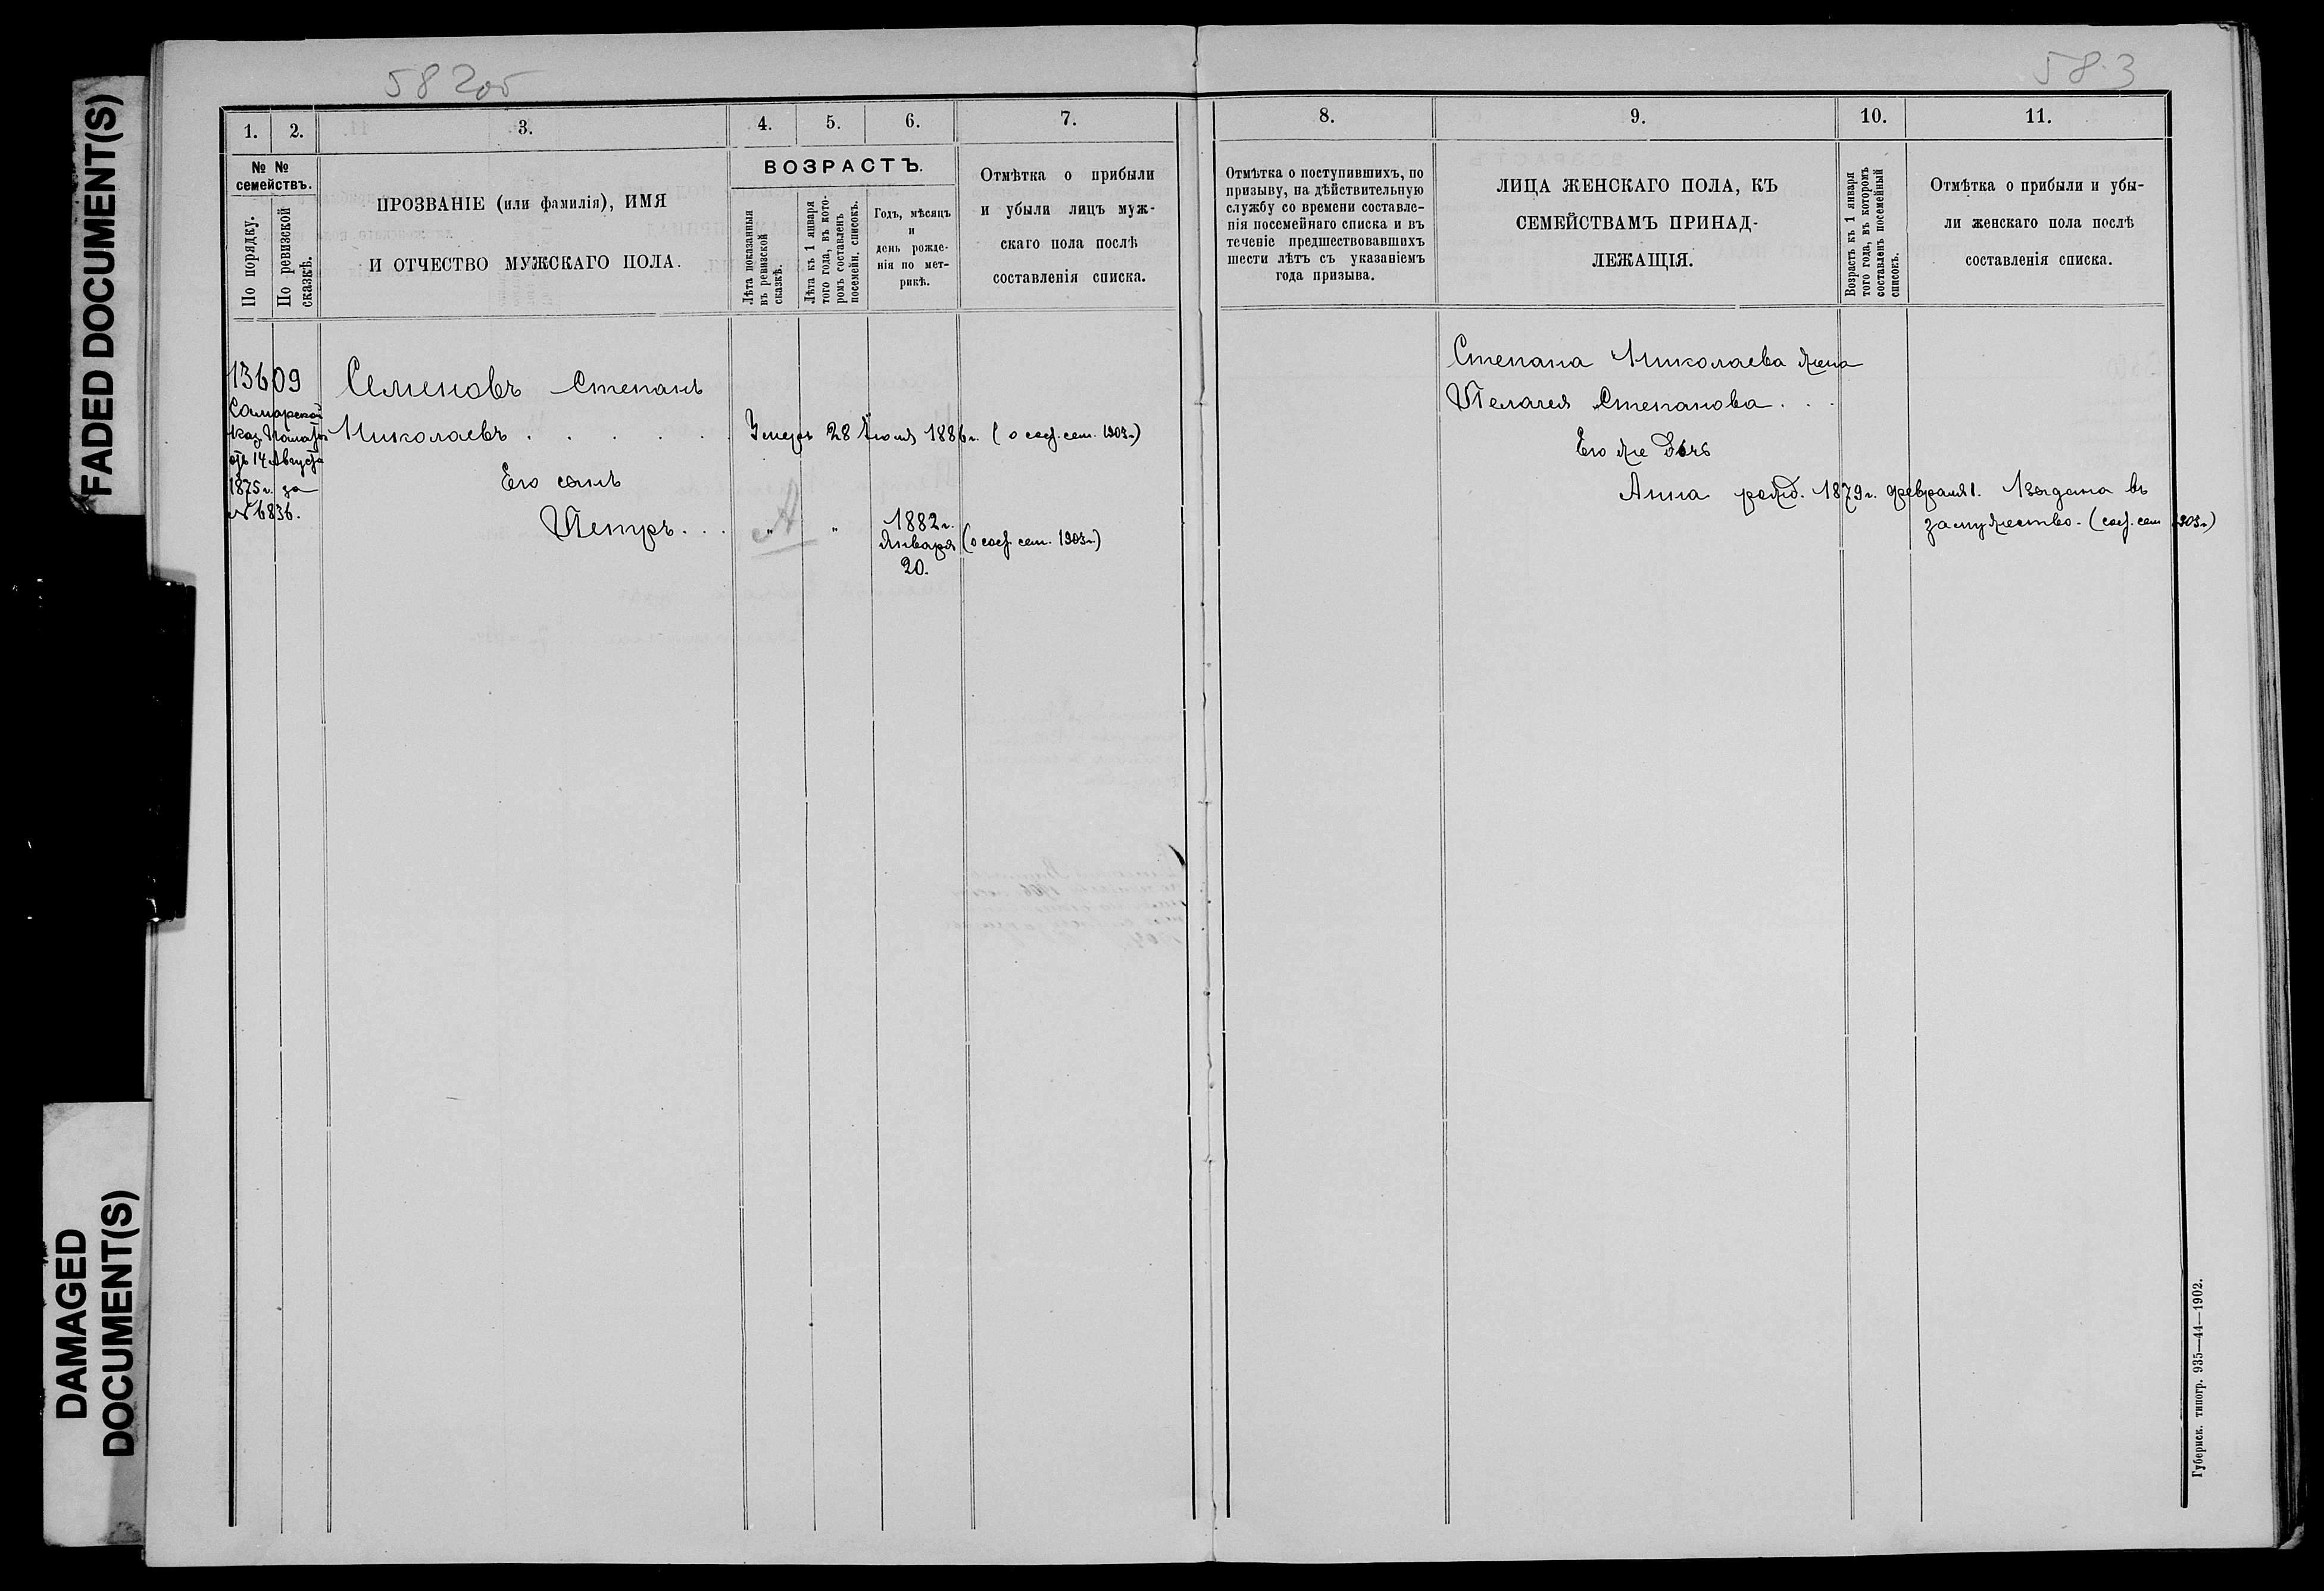 FADED DOCUMENT(S)
DAMAGED
DOCUMENT(S)
582об
583
1.
2.
3.
4.
5.
6.
7.
№ №
семействъ.
По порядку.
По ревизской
сказкѣ.
ПРОЗВАНІЕ (или фамилія), ИМЯ
И ОТЧЕСТВО МУЖСКАГО ПОЛА.
ВОЗРАСТЪ.
Лѣта показанныя
въ ревизской
сказкѣ.
Лѣта къ 1 января
того года, въ кото-
ромъ составленъ
посемейн. списокъ.
Годъ, мѣсяцъ
и
день рожде-
нія по мет-
рикѣ.
Отмѣтка о прибыли
и убыли лицъ муж-
скаго пола послѣ
составленія списка.
13609
Самарской
Каз. Палаты
отъ 14 Августа
1875 г. за
№ 6836.
Семеновъ Степанъ
Николаевъ . . . . . Умеръ 28 Іюня 1886 г. (о сост. сем. 1903 г.)
Его сынъ
Петръ . . . " "
1882 г.
Января (о сост. сем. 1903 г.)
20.
8.
9.
10.
11.
Отмѣтка о поступившихъ, по
призыву, на дѣйствительную
службу со времени составле-
нія посемейнаго списка и въ
теченіе предшествовавшихъ
шести лѣтъ съ указаніемъ
года призыва.
ЛИЦА ЖЕНСКАГО ПОЛА, КЪ
СЕМЕЙСТВАМЪ ПРИНАД-
ЛЕЖАЩІЯ.
Возрастъ къ 1 января
того года, въ которомъ
составленъ посемейный
списокъ.
Отмѣтка о прибыли и убы-
ли женскаго пола послѣ
составленія списка.
Степана Николаева жена
Пелагея Степанова . . .
Его же дочь
Анна рожд. 1879 г. февраля 1. Выдана въ
замужество - (сост. сем 1903 г.)
Губернск. типогр. 935—44—1902.